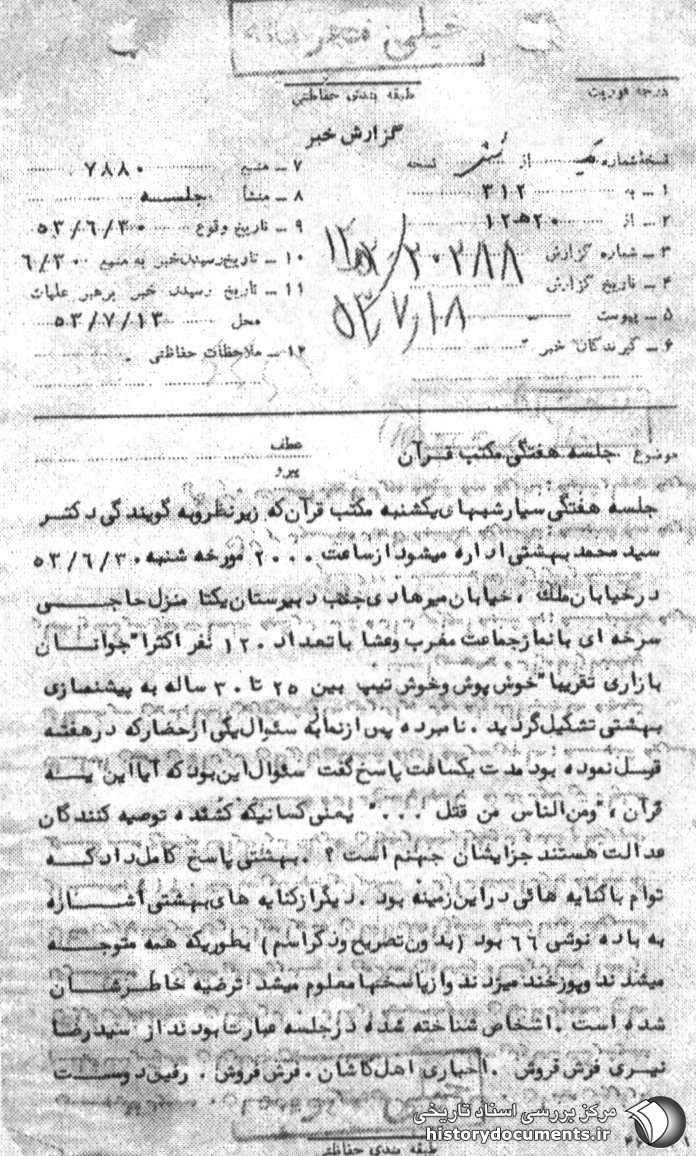 خیلی محرمانه
درجه فوریت
طبقه بندی حفاظتی
گزارش خبر
نسخه شماره یک از نسخه
۱ ـ به ۳۱۲
۲ ـ از ۲۰ هـ ۱۲
۳ ـ شماره گزارش ۲۰۲۸۸ / ۱۲ هـ
۴ ـ تاریخ گزارش ۵۳/۷/۱۸
۵ ـ پیوست
۶ ـ گیرندگان خبر
۷ ـ منبع ۷۸۸۰
۸ ـ منشأ جلسه
۹ ـ تاریخ وقوع ۵۳/۶/۳۰
۱۰ ـ تاریخ رسیدن خبر به منبع ۶/۳۰
۱۱ ـ تاریخ رسیدن خبر برهبر عملیات
محل ۵۳/۷/۱۳
۱۲ ـ ملاحظات حفاظتی
موضوع جلسه هفتگی مکتب قرآن
عطف
پیرو
جلسه هفتگی سیار شبهای یکشنبه مکتب قرآن که زیر نظر و به گویندگی دکتر
سید محمد بهشتی اداره میشود از ساعت ۲۰۰۰ مورخه شنبه ۵۳/۶/۳۰
در خیابان ملک ، خیابان میرهادی جنب دبیرستان یکتا منزل حاجی
سرخه ای با نماز جماعت مغرب و عشا با تعداد ۱۲۰ نفر اکثرا" جوانان
بازاری تقریبا" خوش پوش و خوش تیپ بین ۲۵ تا ۳۰ ساله به پیشنمازی
بهشتی تشکیل گردید . نامبرده پس از نماز به سئوال یکی از حضار که در هفته
قبل نموده بود مدت یکساعت پاسخ گفت سئوال این بود که آیا این آیه
قرآن ، "ومن الناس من قتل ..." یعنی کسانیکه کشنده توصیه کنندگان
عدالت هستند جزایشان جهنم است ؟ . بهشتی پاسخ کامل داد که
توام با کنایه هائی در این زمینه بود . دیگر از کنایه های بهشتی اشاره
به باده نوشی ۶۶ بود (بدون تصریح و ذکر اسم) بطوریکه همه متوجه
میشدند و پوزخند میزدند و از پاسخها معلوم میشد ترضیه خاطرشان
شده است . اشخاص شناخته شده در جلسه عبارت بودند از سید رضا
نیری فرش فروش . اخباری اهل کاشان . فرش فروش . رفیق دوست
طبقه بندی حفاظتی
مرکز بررسی اسناد تاریخی
historydocuments.ir